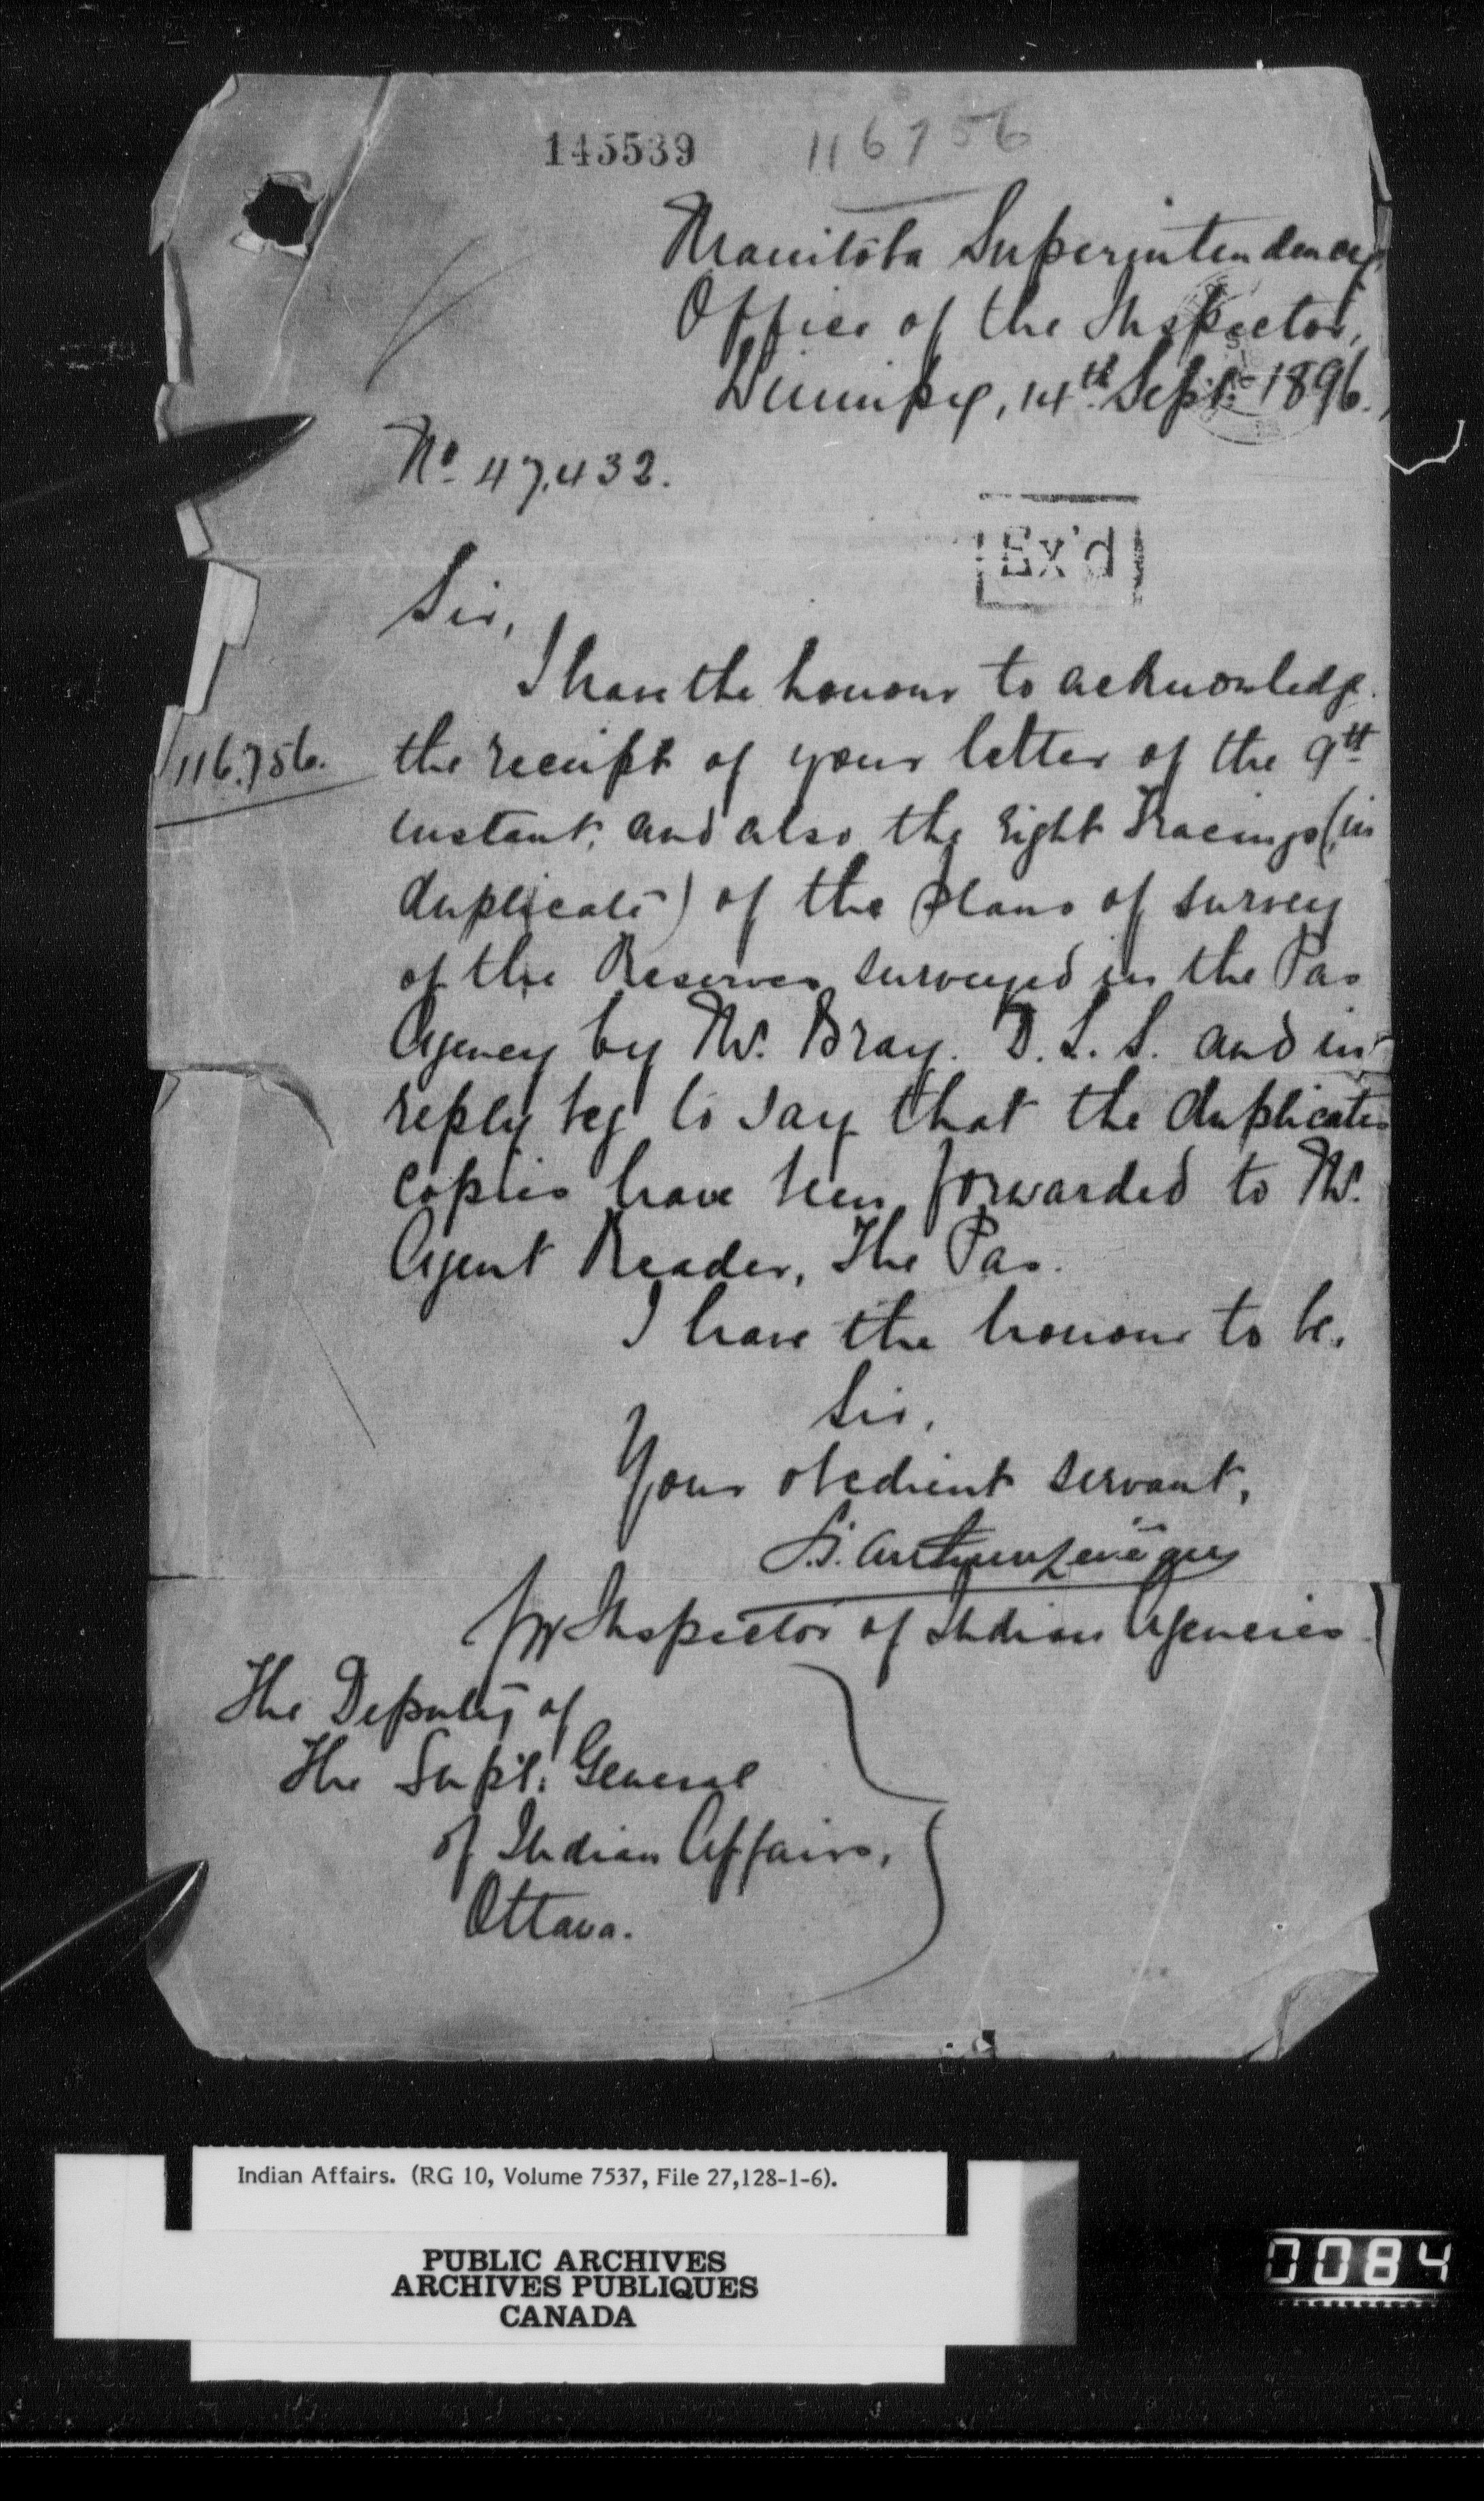 145539
116756
Manitoba Superintendency
Office of the Inspector,
Winnipeg, 14th Sept. 1896.
No. 47,432.
Ex'd
Sir,
I have the honour to acknowledge
116.756.
the receipt of your letter of the 9th
instant, and also the eight Tracings (in
duplicate) of the plans of survey
of the Reserves surveyed in the Pas
Agency by Mr. Bray. D.L.S. and in
reply beg to say that the duplicate
copies have been forwarded to Mr.
Agent Reader, The Pas.
I have the honour to be,
Sir,
Your obedient servant,
for Inspector of Indian Agencies
The Deputy of
The Supt. General
of Indian Affairs,
Ottawa.
Indian Affairs. (RG 10, Volume 7537, File 27,128-1-6).
PUBLIC ARCHIVES
ARCHIVES PUBLIQUES
CANADA
0084